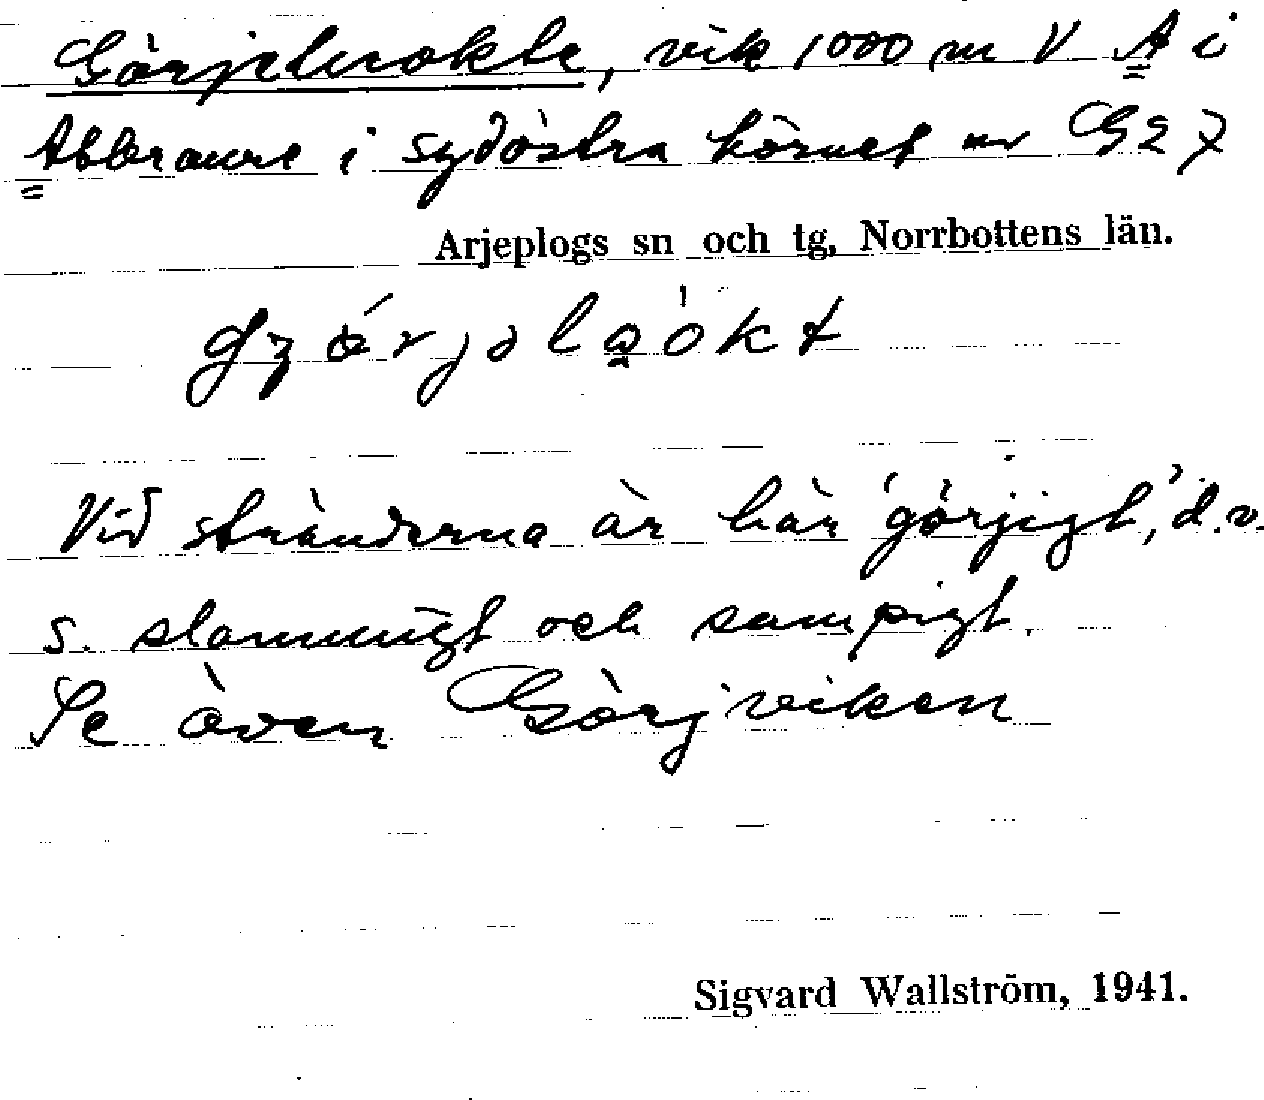 Görjeluokte, vik 1000 m V A i
Abbraure i sydöstra hörnet av G27
Arjeplogs sn och tg, Norrbottens län.
Vid stränderna är här 'görjigt', d.v.
s. slammigt och sampigt.
Se även Görjviken
Sigvard Wallström, 1941.